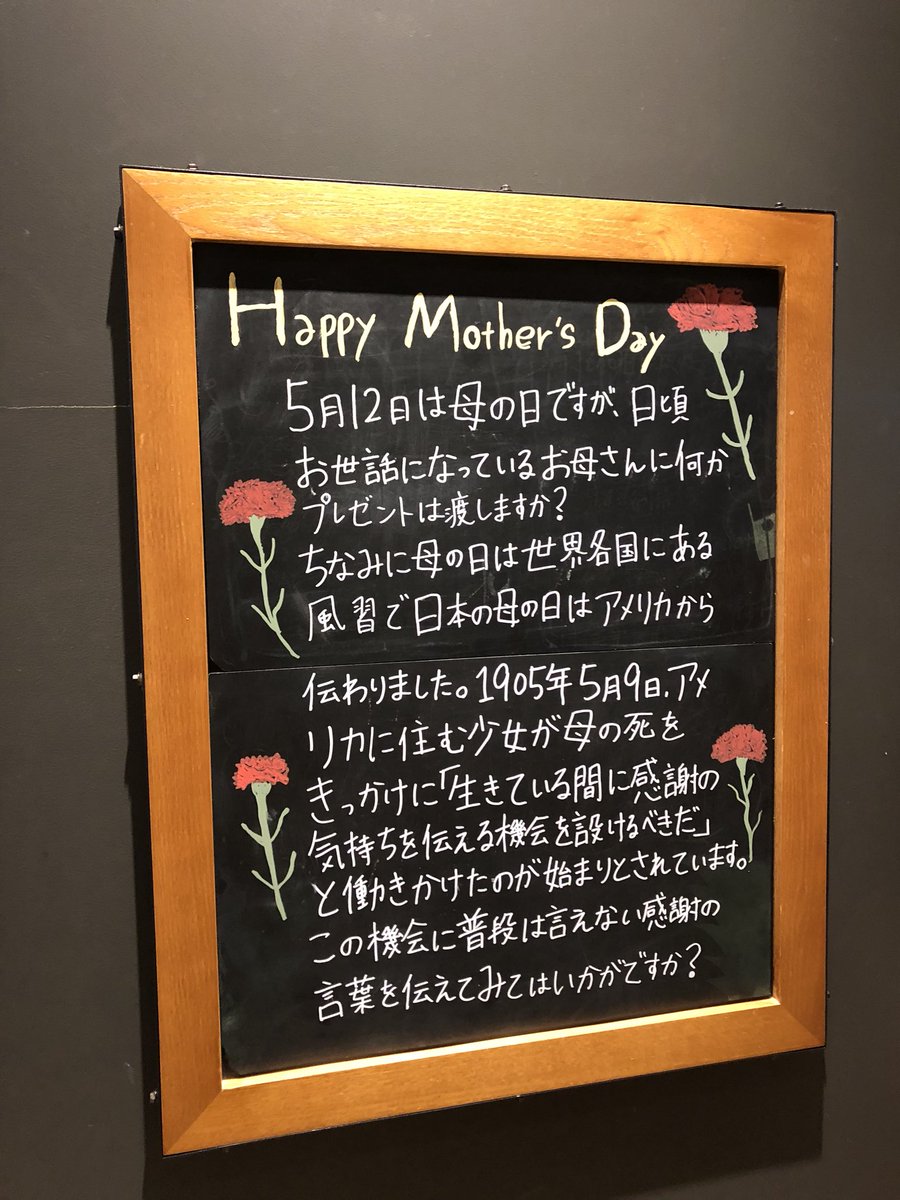 Happy Mother's Day
5月12日は母の日ですが、日頃
お世話になっているお母さんに何か
プレゼントは渡しますか?
ちなみに母の日は世界各国にある
風習で日本の母の日はアメリカから
伝わりました。1905年5月9日、アメ
リカに住む少女が母の死を
きっかけに「生きている間に感謝の
気持ちを伝える機会を設けるべきだ」
と働きかけたのが始まりとされています。
この機会に普段は言えない感謝の
言葉を伝えてみてはいかがですか?